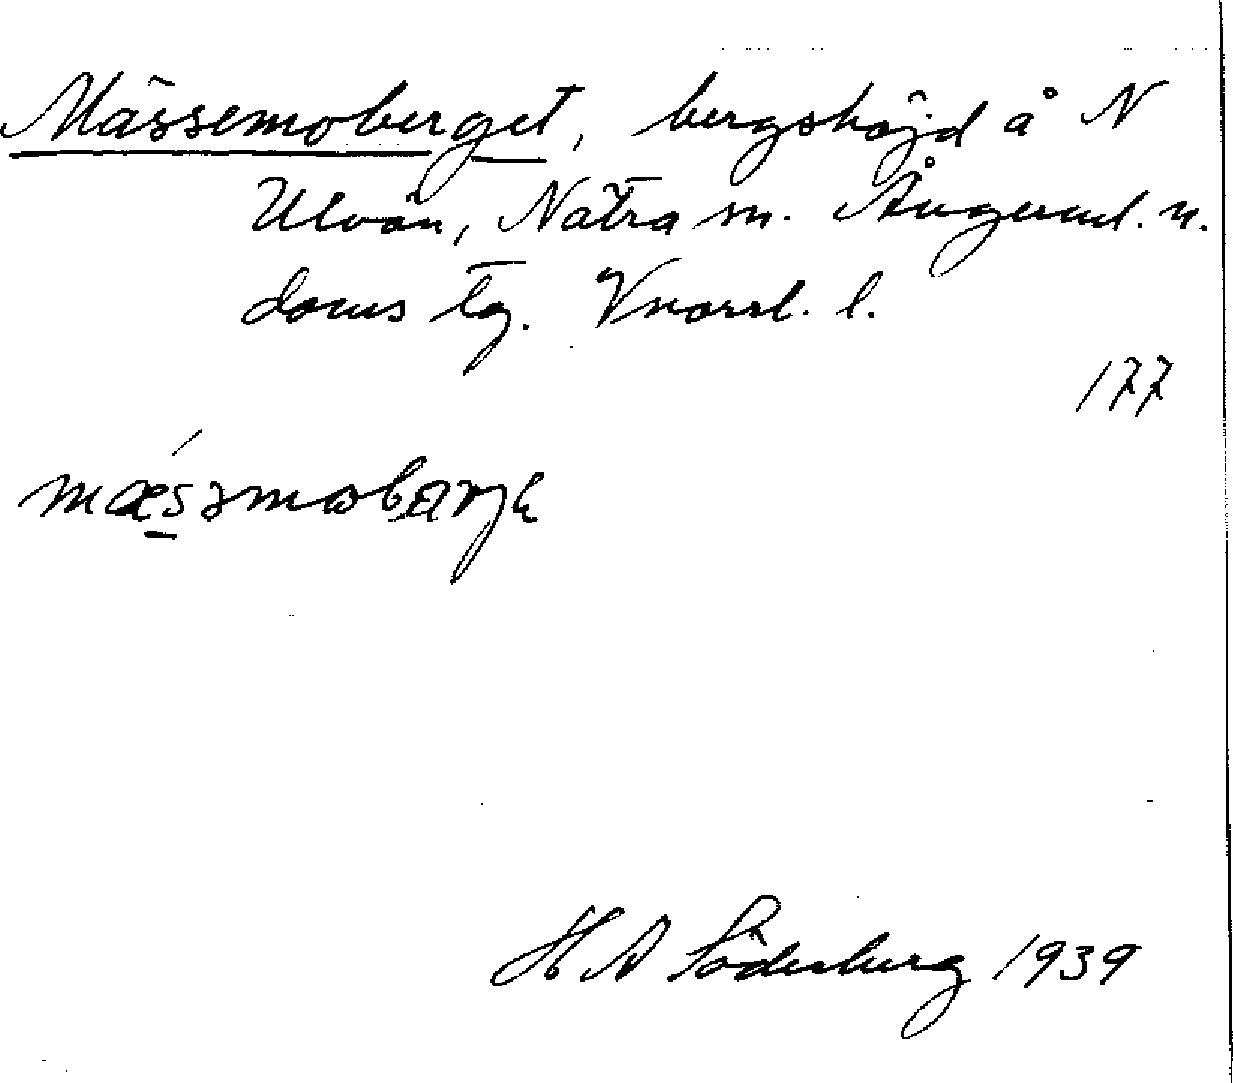 Mässemoberget, bergshöjd å N
Ulvön, Nätra sn. Ångerml. n.
doms tg. Vnorrl. l.
177
mǽsəmobærjε
H A Söderberg 1939